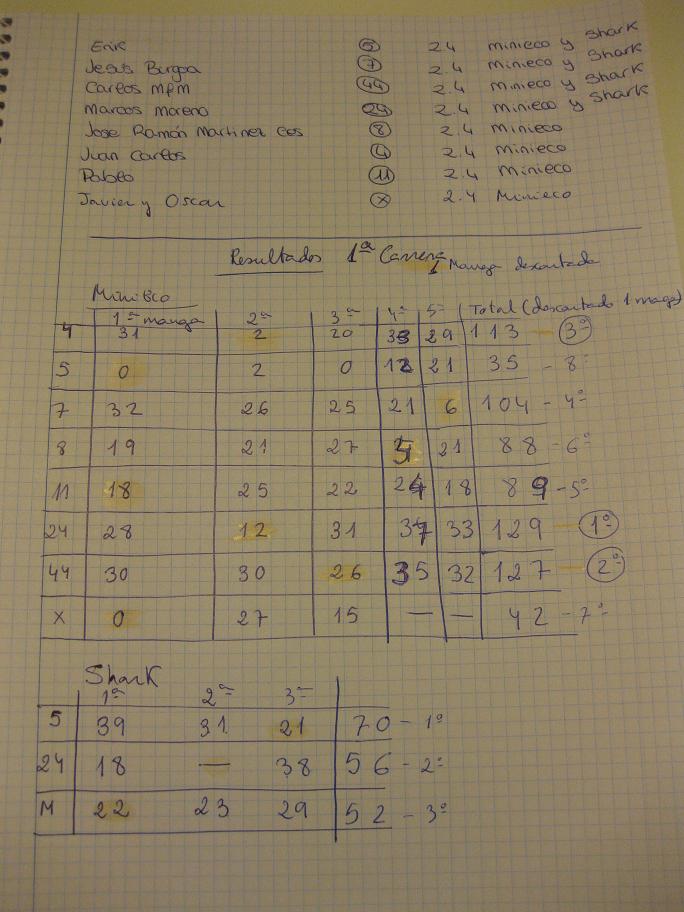 Erik 5 24 minieco y Shark
Jesus Burgoa 7 2.4 minieco y Shark
Carlos MPM 44 2.4 minieco y Shark
Marcos Moreno 24 2.4 minieco y Shark
Jose Ramón Martinez Ces 8 2.4 minieco
Juan Carlos 4 2.4 minieco
Pablo 11 2.4 minieco
Javier y Oscar X 2.4 Minieco
Resultados 1ª Carrera
1 Manga descontada
Minieco
1ª manga 2ª 3ª 4ª 5ª Total (descontado 1 manga)
4 31 2 20 33 29 113 - 3º
5 0 2 0 12 21 35 - 8º
7 32 26 25 21 6 104 - 4º
8 19 21 27 21 88 - 6º
11 18 25 22 24 18 89 - 5º
24 28 12 31 37 33 129 - 1º
44 30 30 26 35 32 127 - 2º
X 0 27 15 — — 42 - 7º
Shark
1ª 2ª 3ª
5 39 31 21 70 - 1º
24 18 — 38 56 - 2º
M 22 23 29 52 - 3º